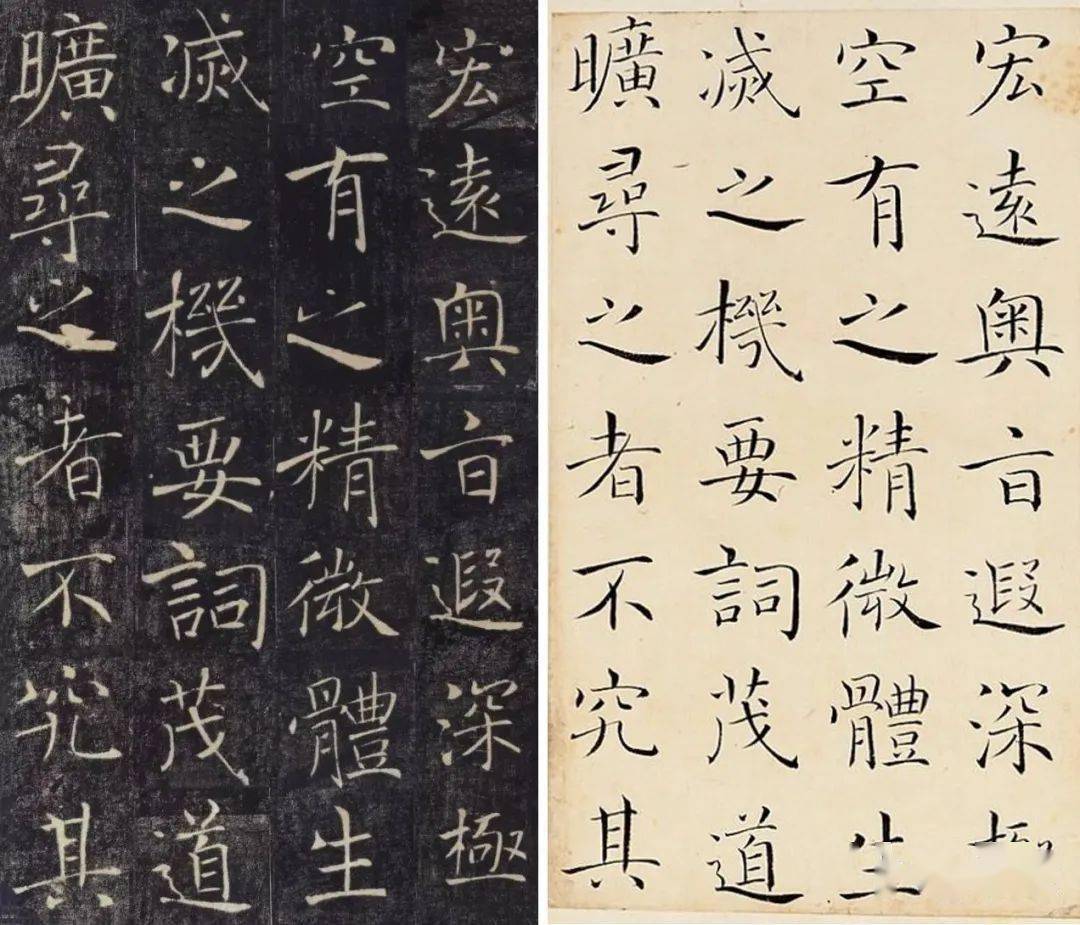 宏遠奧旨遐深極
空有之精微體生
滅之機要詞茂道
曠尋之者不究其
宏遠奧旨遐深
空有之精微體生
滅之機要詞茂道
曠尋之者不究其